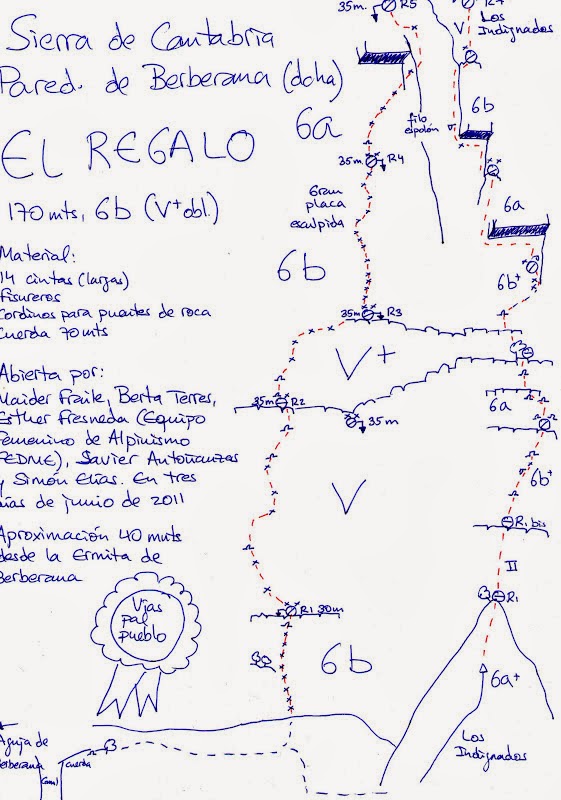 Sierra de Cantabria
Pared. de Berberana (doha)
EL REGALO
170 mts, 6b (V+ obl.)
Material:
14 cintas (largas)
fisureros
Cordinos para puentes de roca
Cuerda 70 mts
Abierta por:
Maider Fraile, Berta Terres,
Esther Fresneda (Equipo
Femenino de Alpinismo
FEDME), Savier Antoñanzas
y Simón Elías. En tres
días de junio de 2011
Aproximación 40 mnts
desde la Ermita de
Berberana
Vias
pal
pueblo
Aguja de
Berberana
Canal
cuerda
35m.
R5
6a
35m
R4
Gran
placa
esculpida
6b
35m
R3
V+
35m
R2
35m
V
R1 30m
6b
filo
espolón
R4
Los
Indignados
V
6b
6a
6b+
6a
6b+
R1 bis
II
R1
6a+
Los
Indignados